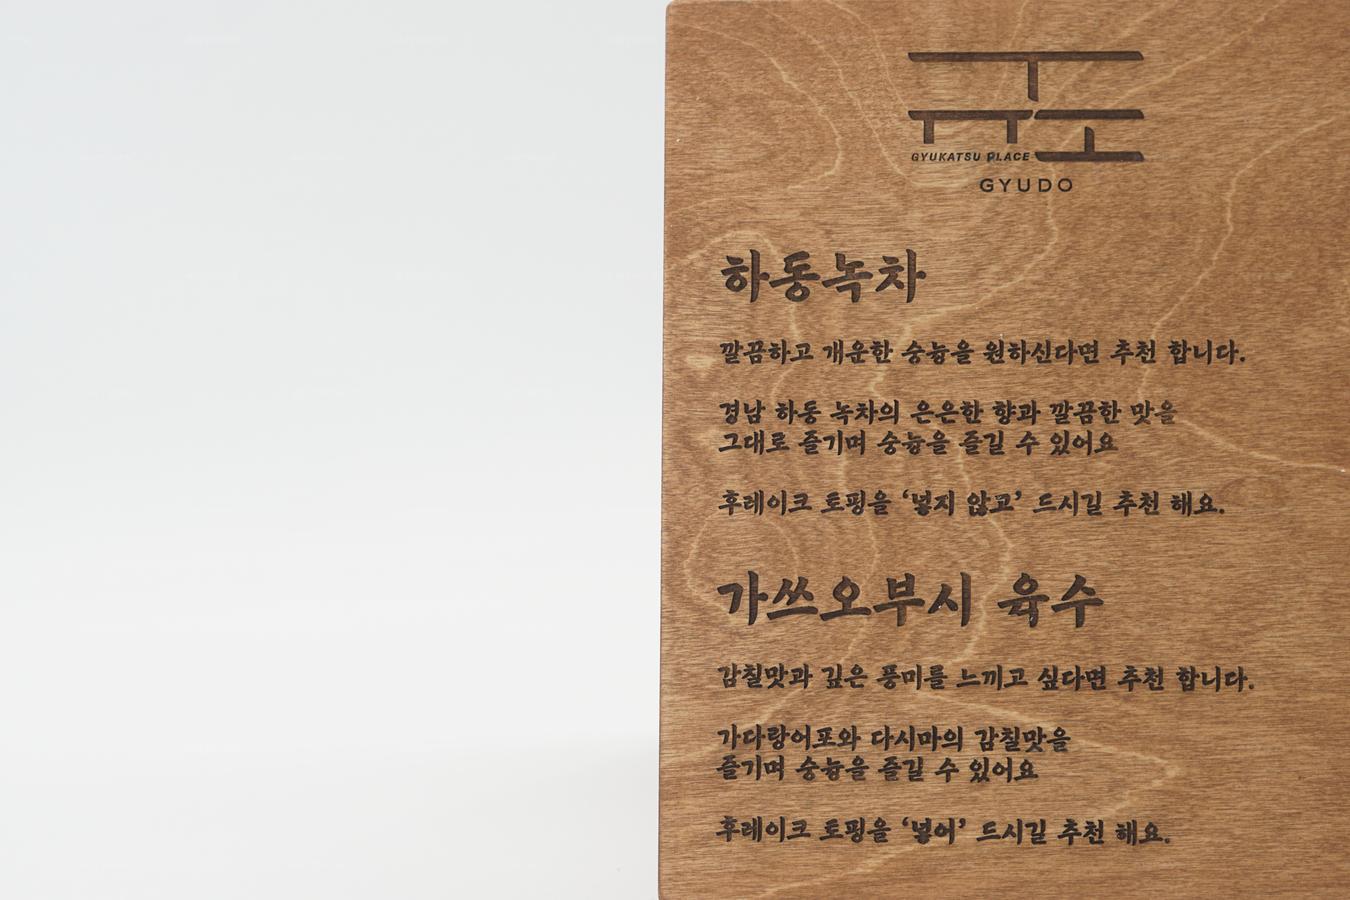 규도
GYUKATSU PLACE
GYUDO
하동녹차
깔끔하고 개운한 숭늉을 원하신다면 추천 합니다.
경남 하동 녹차의 은은한 향과 깔끔한 맛을
그대로 즐기며 숭늉을 즐길 수 있어요
후레이크 토핑을 ‘넣지 않고’ 드시길 추천 해요.
가쓰오부시 육수
감칠맛과 깊은 풍미를 느끼고 싶다면 추천 합니다.
가다랑어포와 다시마의 감칠맛을
즐기며 숭늉을 즐길 수 있어요
후레이크 토핑을 ‘넣어’ 드시길 추천 해요.